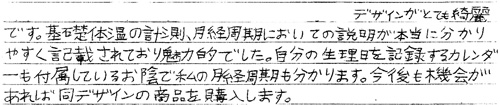 デザインがとても綺麗
です。基礎体温の計測、月経周期においての説明が本当に分かり
やすく記載されており魅力的でした。自分の生理日を記録するカレンダ
ーも付属しているお陰で私の月経周期も分かります。今後も機会が
あれば同デザインの商品を購入します。